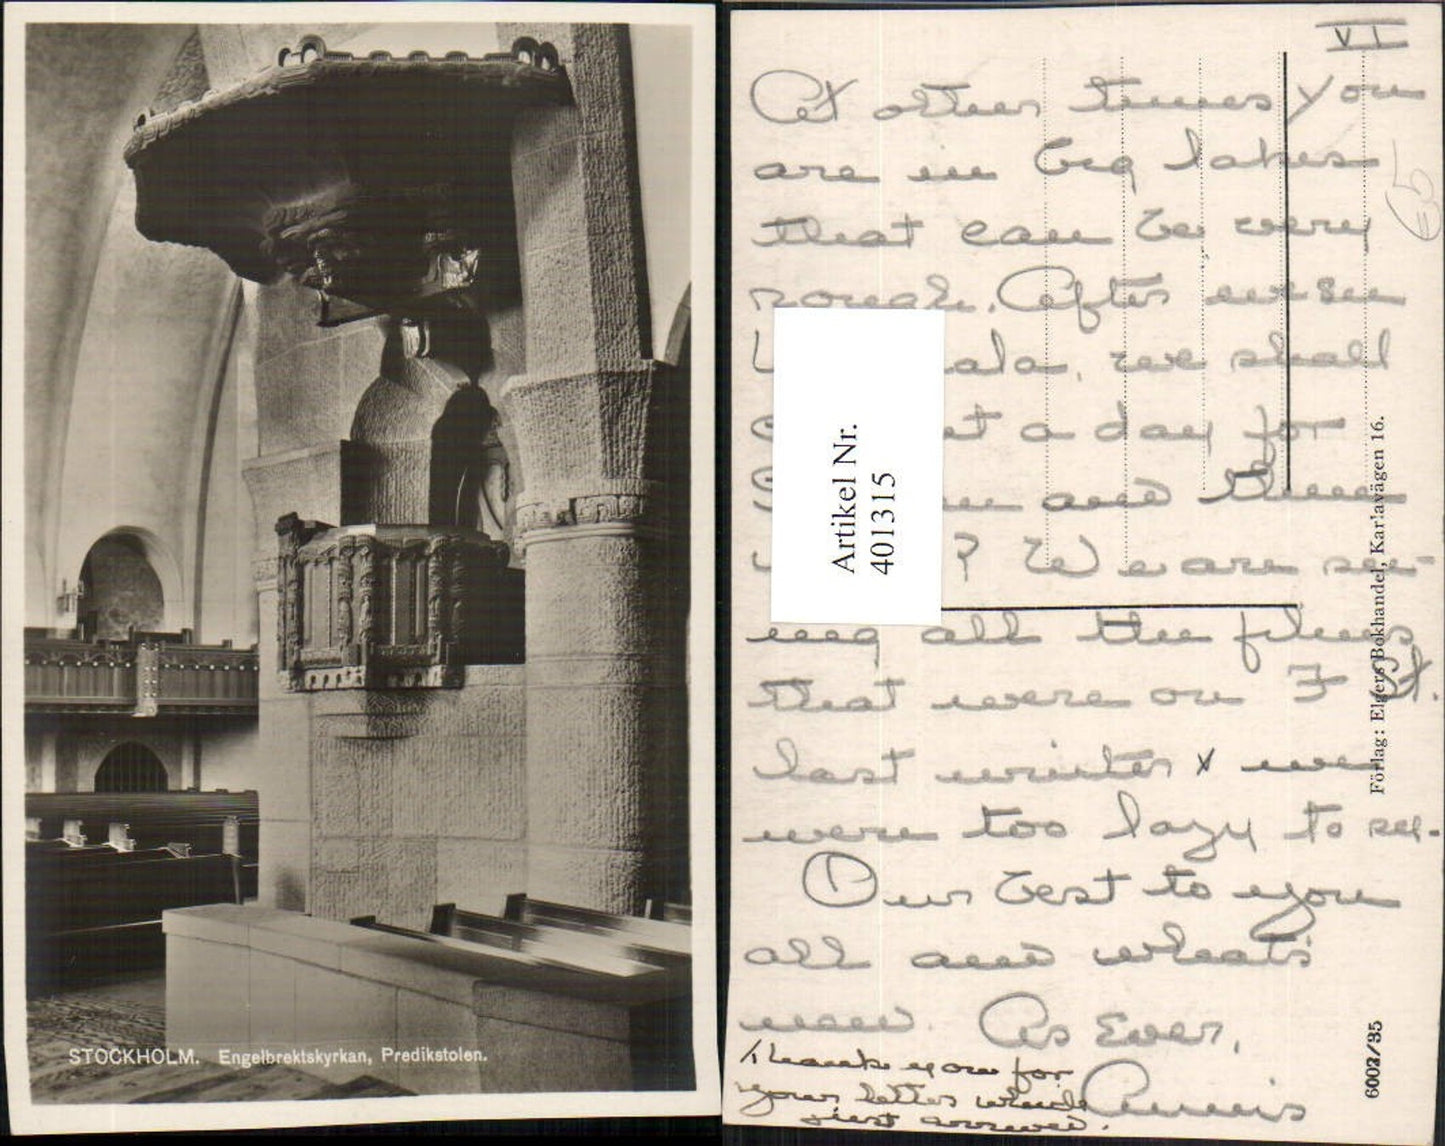 STOCKHOLM. Engelbrektskyrkan, Predikstolen.
VI
At other times you
are in big lakes
that can be very
rough. After we see
ala, we shall
at a day for
and then
? We are see-
ing all the films
that were on F St.
last winter & we
were too lazy to see.
Our best to you
all and what's
new. As Ever,
Annis
Thank you for
your letter which
just arrived.
Artikel Nr.
401315
65
Förlag: Elgers Bokhandel, Karlavägen 16.
6002/35